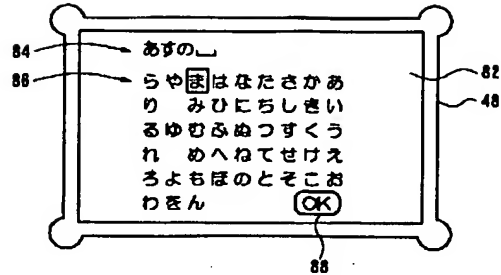 84 あすの␣
86 らやまはなたさかあ 82
り みひにちしきい 48
るゆむふぬつすくう
れ めへねてせけえ
ろよもほのとそこお
わをん OK
88